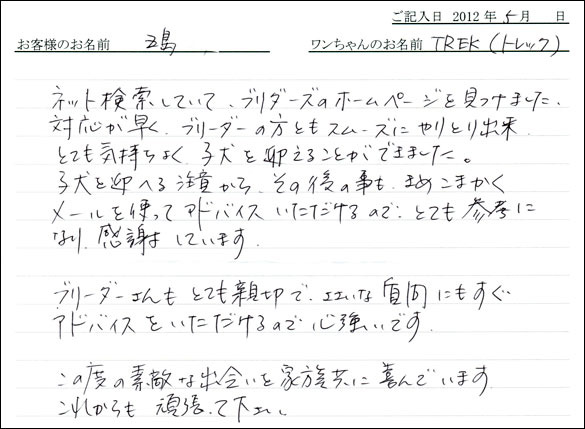 ご記入日 2012年5月 日
お客様のお名前 五島 ワンちゃんのお名前 TREK(トレック)
ネット検索していて、ブリダーズのホームページを見つけました、
対応が早く、ブリーダーの方ともスムーズにやりとり出来
とても気持ちよく、子犬を迎えることができました。
子犬を迎へる注意から、その後の事も、まめこまかく
メールを使ってアドバイスいただけるので、とても参考に
なり、感謝しています。
ブリーダーさんもとても親切で、ささいな質問にもすぐ
アドバイスをいただけるので心強いです。
この度の素敵な出会いを家族共に喜んでいます
これからも頑張って下さい